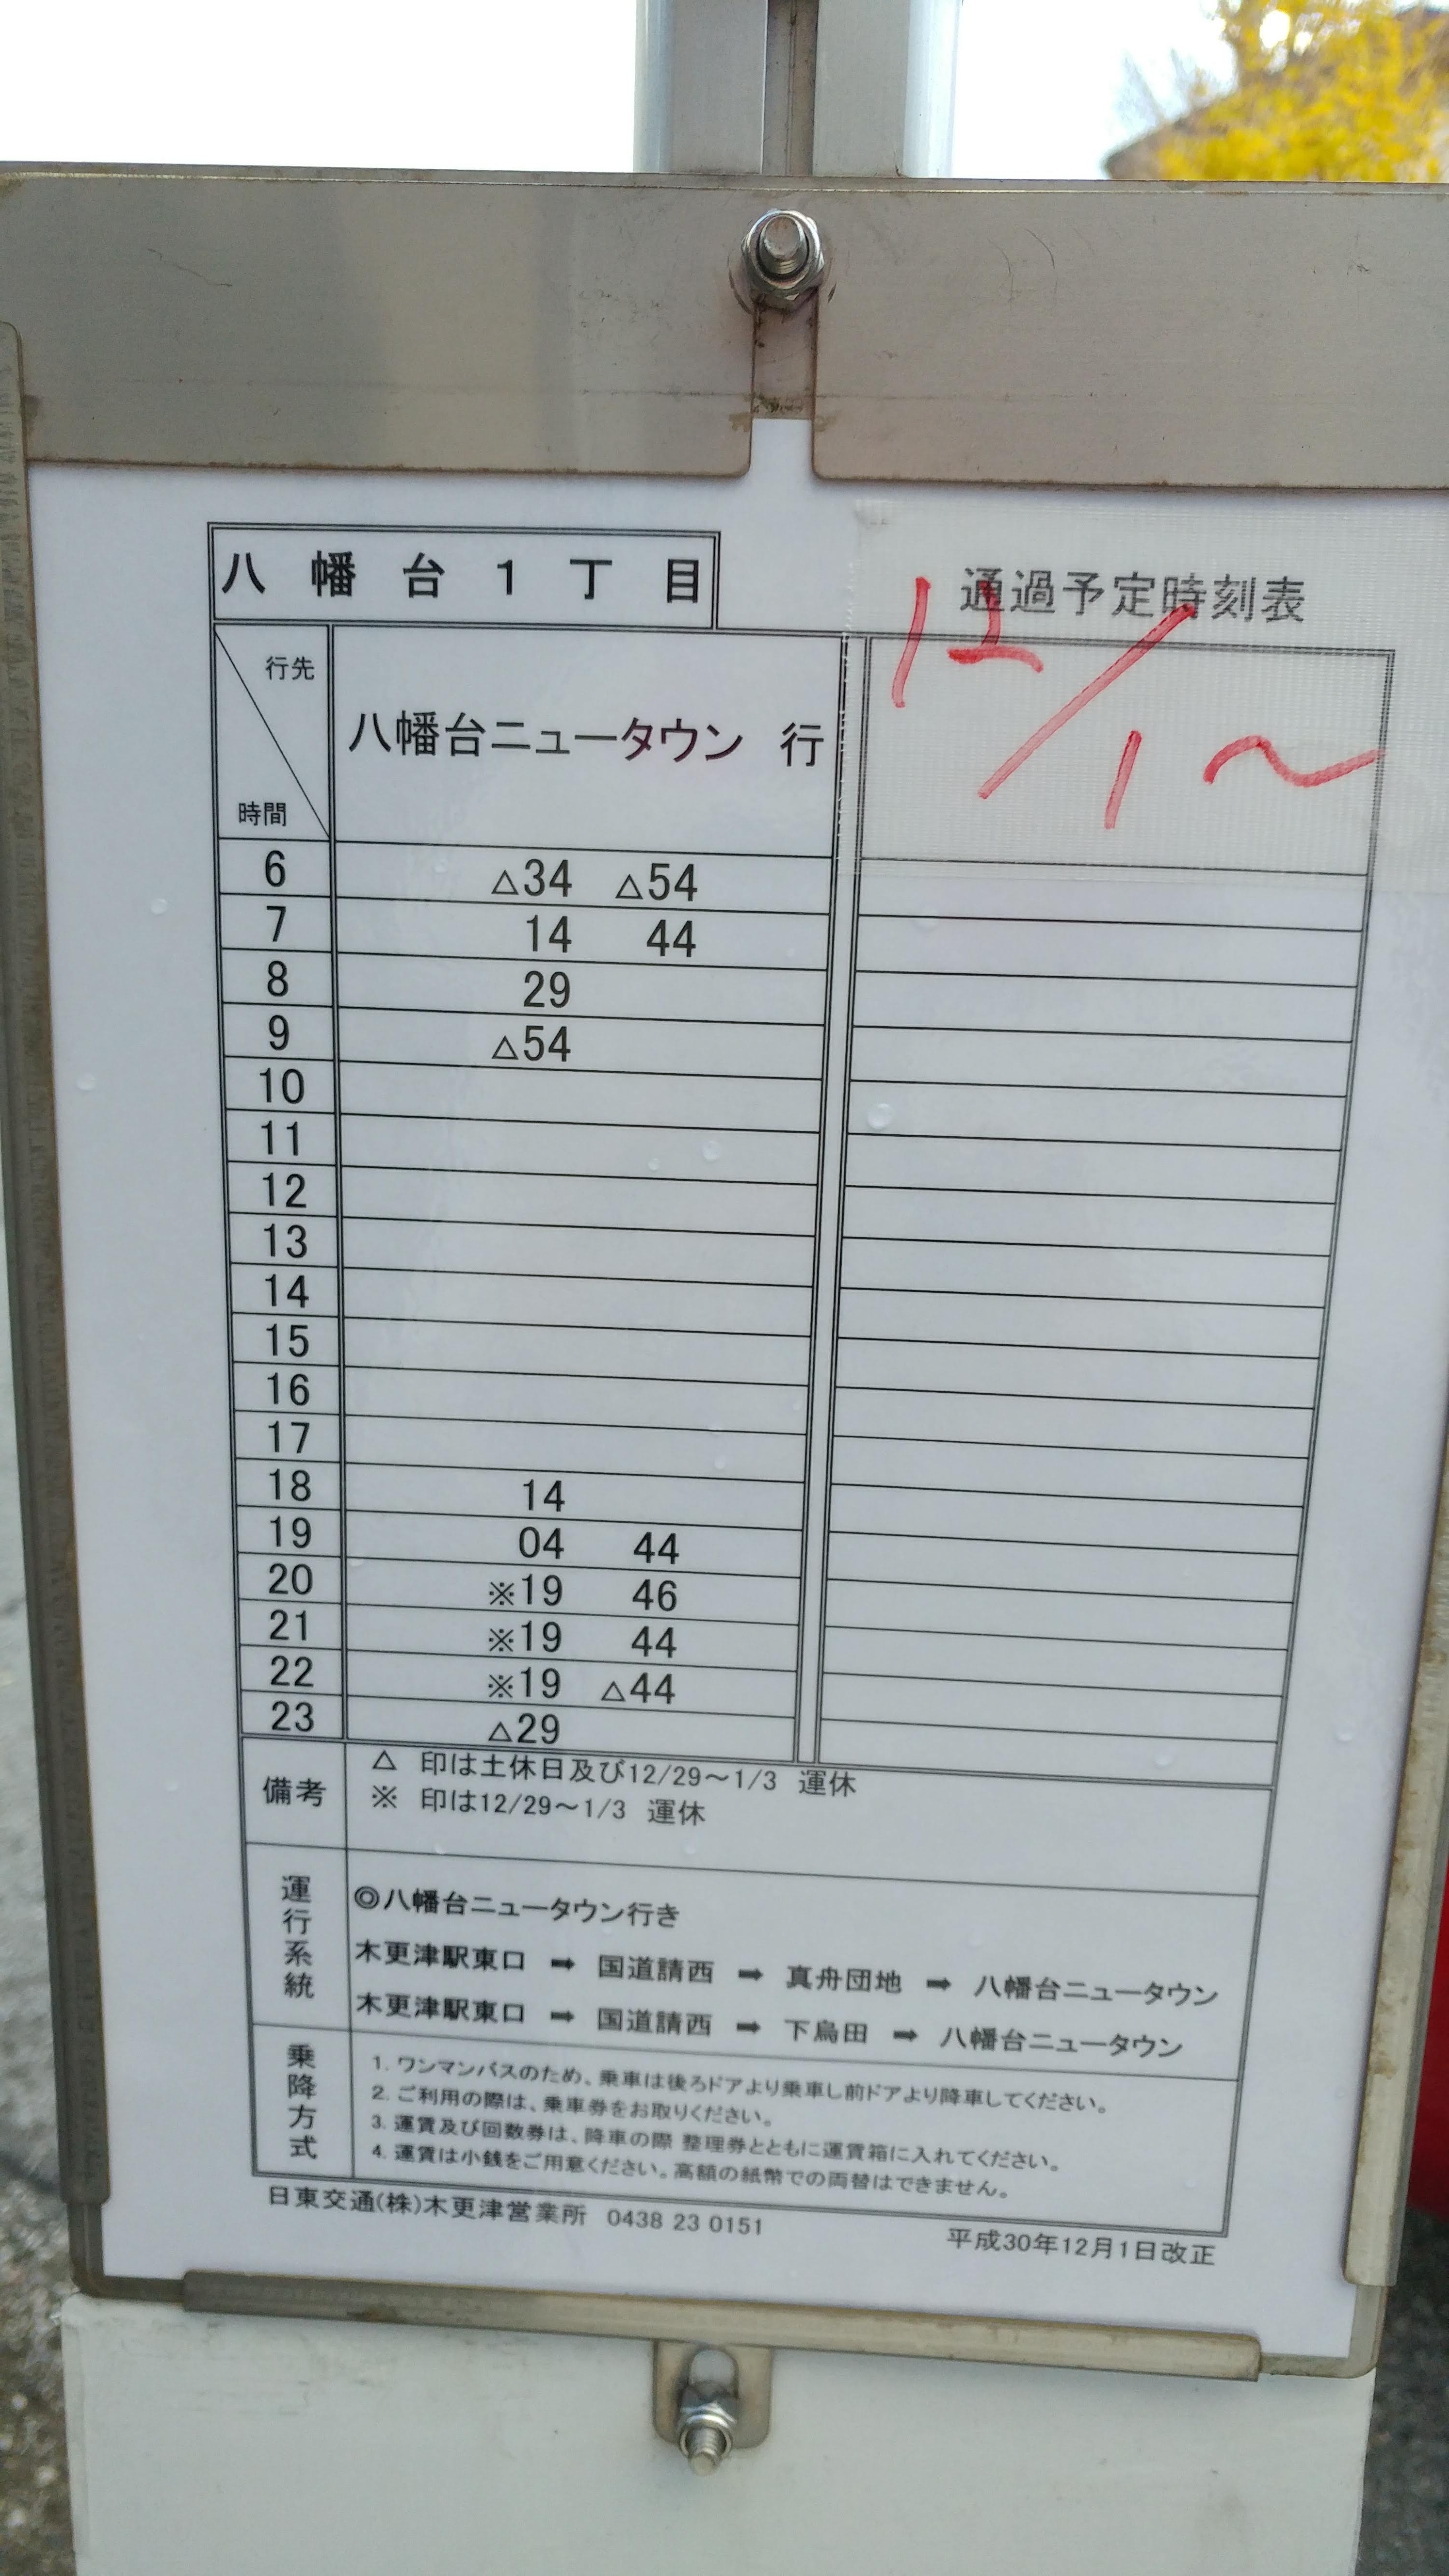 八幡台1丁目
通過予定時刻表
12/1～
行先
時間
八幡台ニュータウン 行
6 △34 △54
7 14 44
8 29
9 △54
10
11
12
13
14
15
16
17
18 14
19 04 44
20 ※19 46
21 ※19 44
22 ※19 △44
23 △29
備考
△ 印は土休日及び12/29～1/3 運休
※ 印は12/29～1/3 運休
運行系統
◎八幡台ニュータウン行き
木更津駅東口 ➡ 国道請西 ➡ 真舟団地 ➡ 八幡台ニュータウン
木更津駅東口 ➡ 国道請西 ➡ 下烏田 ➡ 八幡台ニュータウン
乗降方式
1. ワンマンバスのため、乗車は後ろドアより乗車し前ドアより降車してください。
2. ご利用の際は、乗車券をお取りください。
3. 運賃及び回数券は、降車の際 整理券とともに運賃箱に入れてください。
4. 運賃は小銭をご用意ください。高額の紙幣での両替はできません。
日東交通(株)木更津営業所 0438 23 0151
平成30年12月1日改正